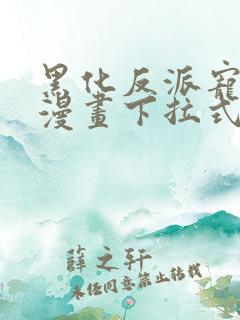 黑化反派寵
漫畫下拉式
薛之轩
未经同意禁止转载